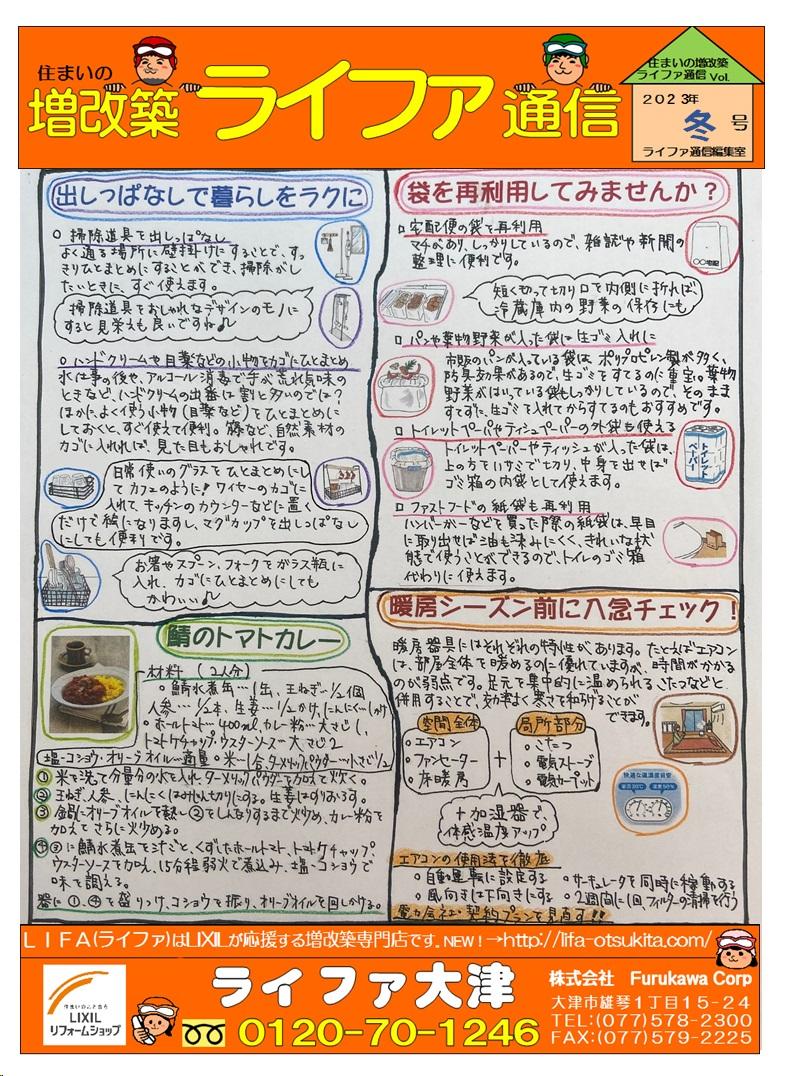 住まいの
増改築 ライファ通信
住まいの増改築
ライファ通信 Vol.
2023年
冬号
ライファ通信編集室
出しっぱなしで暮らしをラクに
掃除道具を出しっぱなし
よく通る場所に壁掛けにすることで、すっ
きりひとまとめにすることができ、掃除がし
たいときに、すぐ使えます。
掃除道具をおしゃれなデザインのモノに
すると見栄えも良いですね♪
ハンドクリームや目薬などの小物をカゴにひとまとめ
水仕事の後や、アルコール消毒で手が荒れ気味の
ときなど、ハンドクリームの出番は割と多いのでは?
ほかに、よく使う小物(目薬など)をひとまとめに
しておくと、すぐ使えて便利。籐など、自然素材の
カゴに入れれば、見た目もおしゃれです。
日常使いのグラスをひとまとめにし
てカフェのように!ワイヤーのカゴに
入れて、キッチンのカウンターなどに置く
だけで絵になりますし、マグカップを出しっぱなし
にしても便利です。
お箸やスプーン、フォークをガラス瓶に
入れ、カゴにひとまとめにしても
かわいい♪
袋を再利用してみませんか?
宅配便の袋を再利用
マチがあり、しっかりしているので、雑誌や新聞の
整理に便利です。
短く切って切り口を内側に折れば、
冷蔵庫内の野菜の保存にも
パンや葉物野菜が入った袋は生ゴミ入れに
市販のパンが入っている袋は、ポリプロピレン製が多く、
防臭効果があるので、生ゴミをすてるのに重宝。葉物
野菜がはいっている袋もしっかりしているので、そのまま
すてずに、生ゴミを入れてからすてるのもおすすめです。
トイレットペーパーやティシュペーパーの外袋も使える
トイレットペーパーやティッシュが入った袋は、
上の方をハサミで切り、中身を出せば
ゴミ箱の内袋として使えます。
トイレットペーパー
ファストフードの紙袋も再利用
ハンバーガーなどを買った際の紙袋は、早目
に取り出せば油も染みにくく、きれいな状
態で使うことができるので、トイレのゴミ箱
代わりに使えます。
鯖のトマトカレー
材料(2人分)
鯖水煮缶…1缶、玉ねぎ…1/2個
人参…1/2本、生姜…1/2かけ、にんにく…1かけ
ホールトマト…400ml、カレー粉…大さじ1、
トマトケチャップ・ウスターソース…大さじ2
塩・コショウ・オリーブオイル…適量・米…1合、ターメリックパウダー…小さじ1/2
① 米を洗って分量分の水を入れ、ターメリックパウダーを加えて炊く。
② 玉ねぎ、人参、にんにくはみじん切りにする。生姜はすりおろす。
③ 鍋にオリーブオイルを熱し、②をしんなりするまで炒め、カレー粉を
加えてさらに火炒める。
④ ③に鯖水煮缶を汁ごと、くずしたホールトマト、トマトケチャップ、
ウスターソースを加え、15分程弱火で煮込み、塩・コショウで
味を調える。
器に①、④を盛りつけ、コショウを振り、オリーブオイルを回しかける。
暖房シーズン前に入念チェック!
暖房器具にはそれぞれの特性があります。たとえばエアコン
は、部屋全体を暖めるのに優れていますが、時間がかかる
のが弱点です。足元を集中的に温められる、こたつなどと
併用することで、効率よく寒さを和らげることが
できます。
空間全体
・エアコン
・ファンヒーター
・床暖房
+
局所部分
・こたつ
・電気ストーブ
・電気カーペット
+加湿器で、
体感温度アップ
快適な温湿度目安
エアコンの使用法を徹底
自動運転に設定する
サーキュレータを同時に稼動する
風向きは下向きにする
2週間に1回、フィルターの清掃を行う
電力会社・契約プランを見直す!!
LIFA(ライファ)はLIXILが応援する増改築専門店です。NEW!→http://lifa-otsukita.com/
住まいのことなら
LIXIL
リフォームショップ
ライファ大津
0120-70-1246
株式会社 Furukawa Corp
大津市雄琴1丁目15-24
TEL:(077)578-2300
FAX:(077)579-2225